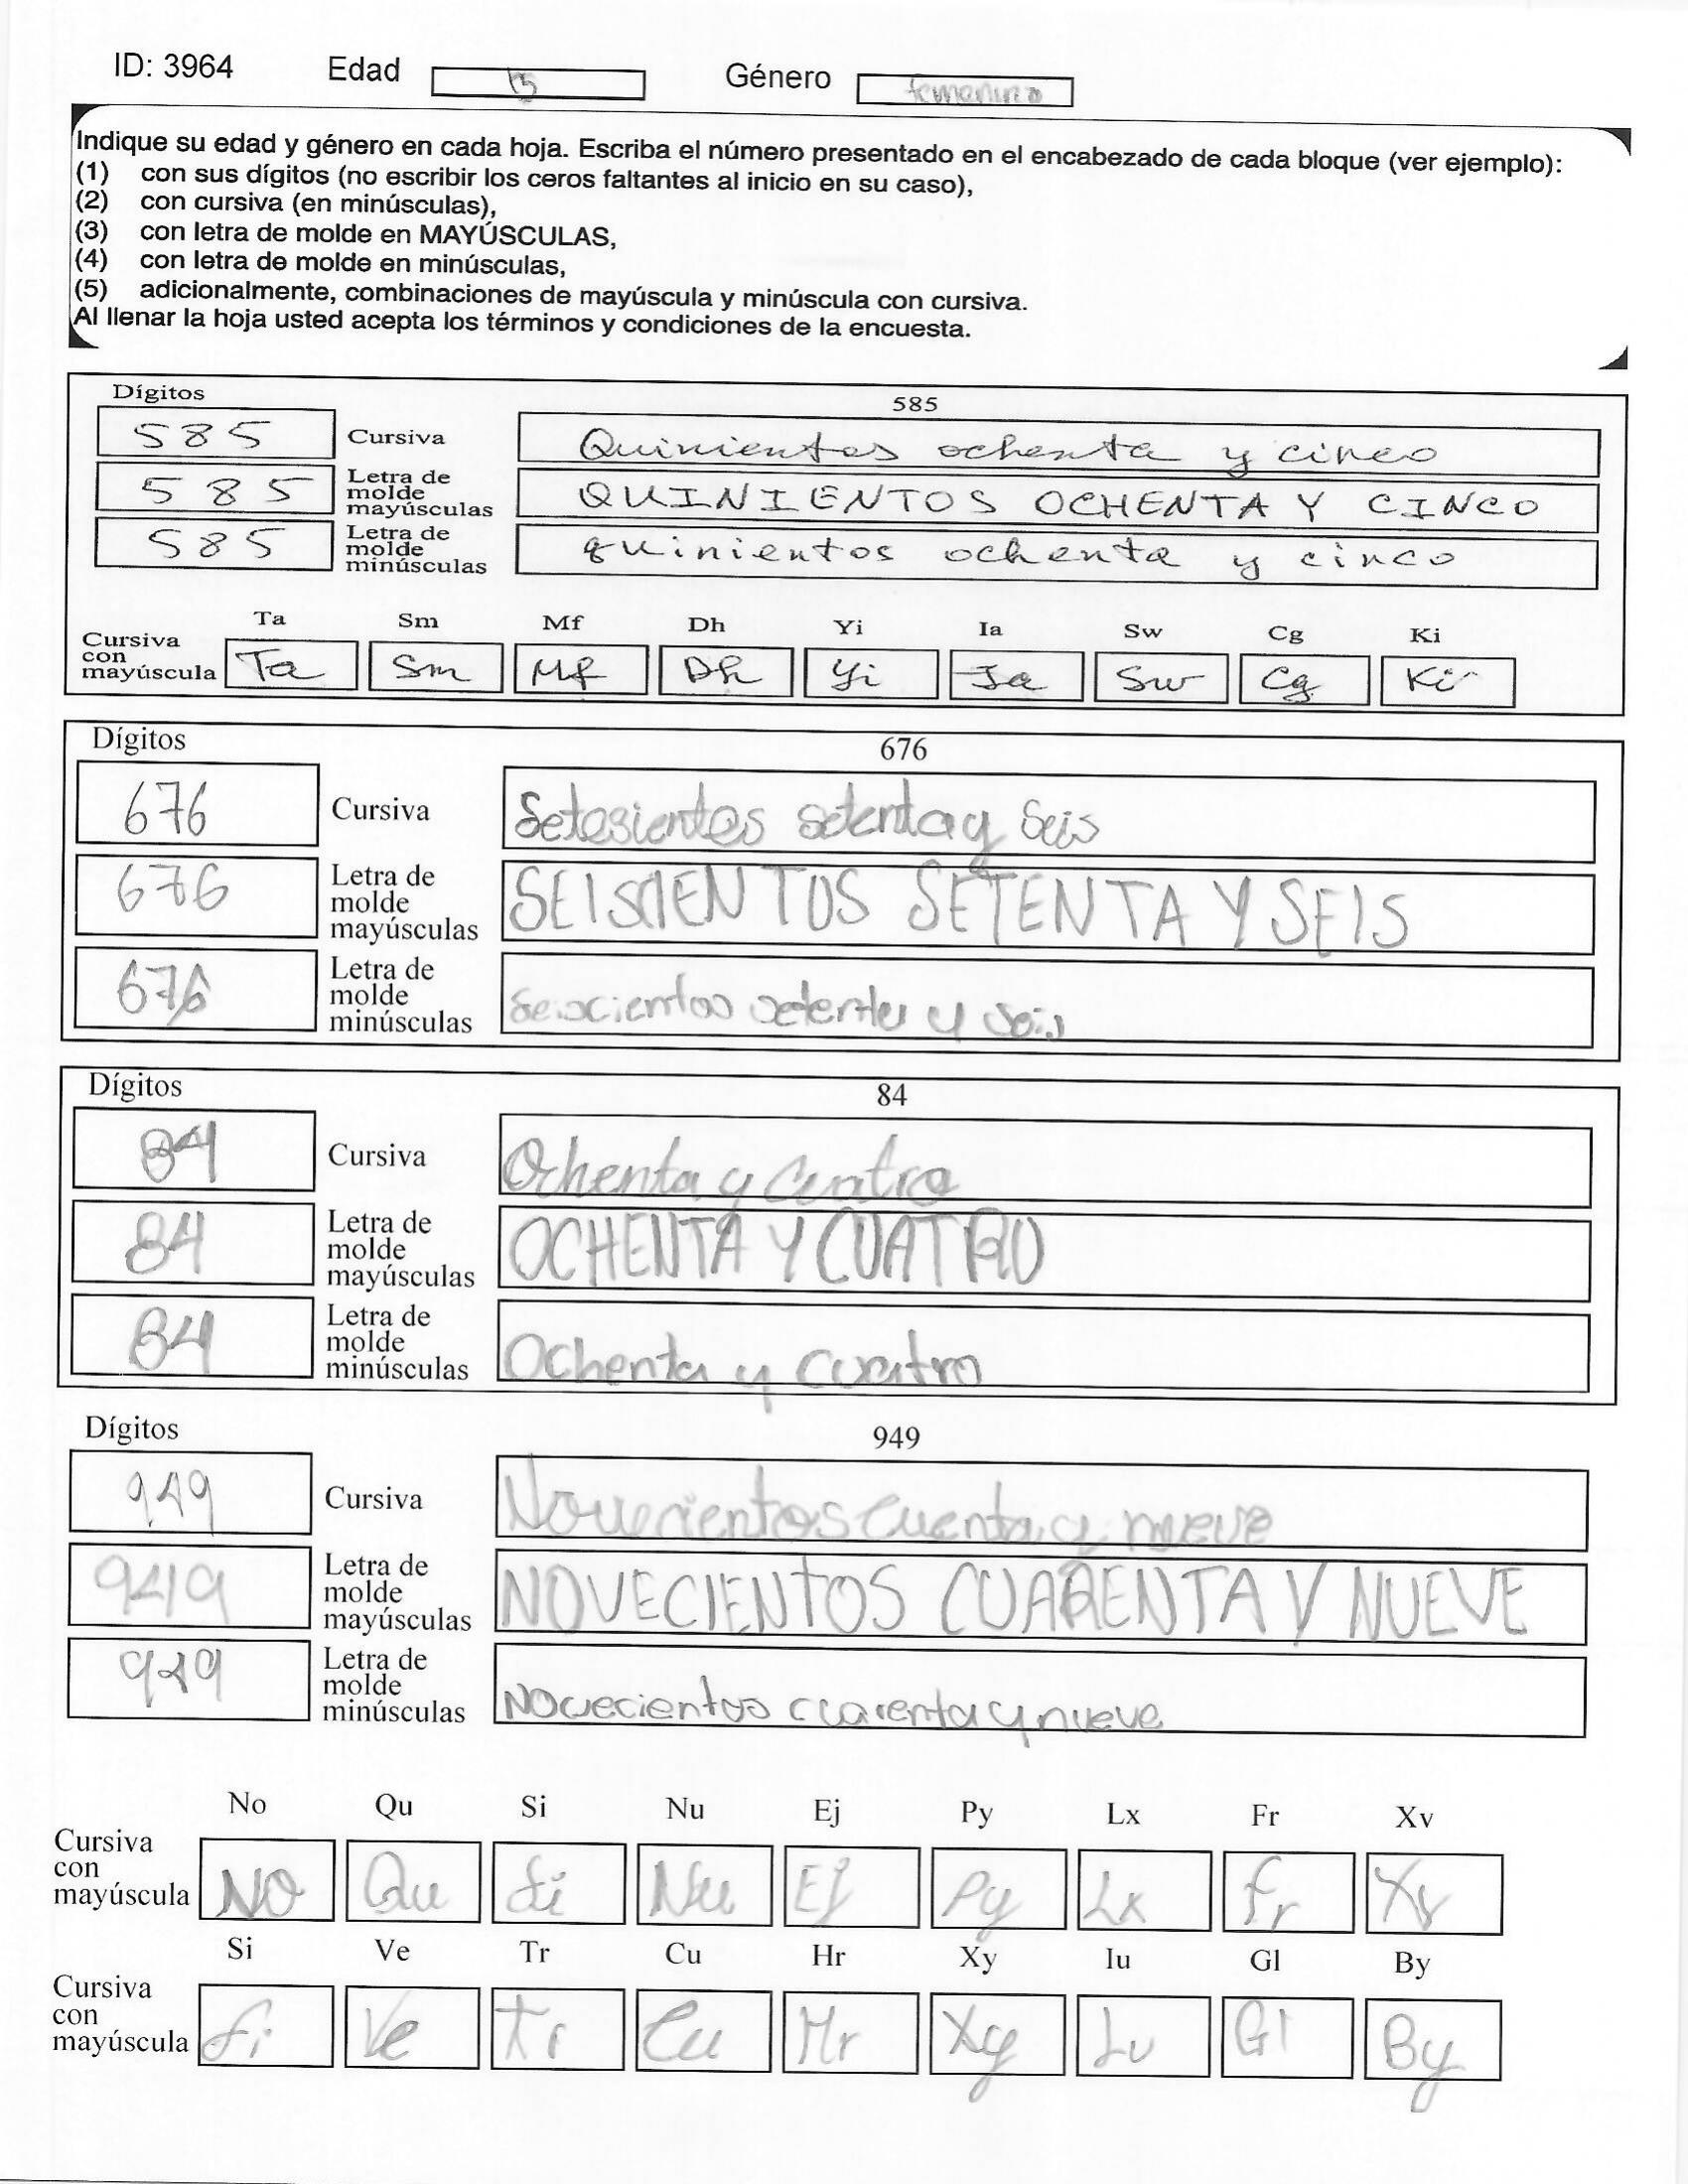 ID: 3964 Edad Género femenino
Indique su edad y género en cada hoja. Escriba el número presentado en el encabezado de cada bloque (ver ejemplo):
(1) con sus dígitos (no escribir los ceros faltantes al inicio en su caso),
(2) con cursiva (en minúsculas),
(3) con letra de molde en MAYÚSCULAS,
(4) con letra de molde en minúsculas,
(5) adicionalmente, combinaciones de mayúscula y minúscula con cursiva.
Al llenar la hoja usted acepta los términos y condiciones de la encuesta.
Dígitos 585
585 Cursiva Quinientos ochenta y cinco
585 Letra de molde mayúsculas QUINIENTOS OCHENTA Y CINCO
585 Letra de molde minúsculas quinientos ochenta y cinco
Ta Sm Mf Dh Yi Ia Sw Cg Ki
Cursiva con mayúscula Ta Sm Mf Dh Yi Ia Sw Cg Ki
Dígitos 676
676 Cursiva Setesientos setenta y Seis
676 Letra de molde mayúsculas SEISCIENTOS SETENTA Y SEIS
676 Letra de molde minúsculas Seiscientos setenta y seis
Dígitos 84
84 Cursiva Ochenta y
84 Letra de molde mayúsculas OCHENTA Y CUATRO
84 Letra de molde minúsculas Ochenta y cuatro
Dígitos 949
949 Cursiva Novecientos cuenta y nueve
949 Letra de molde mayúsculas NOVECIENTOS CUARENTA Y NUEVE
949 Letra de molde minúsculas Novecientos cuarenta y nueve
No Qu Si Nu Ej Py Lx Fr Xv
Cursiva con mayúscula No Qu Si Nu Ej Py Lx Fr Xv
Si Ve Tr Cu Hr Xy Iu Gl By
Cursiva con mayúscula Si Ve Tr Cu Hr Xy Iu Gl By